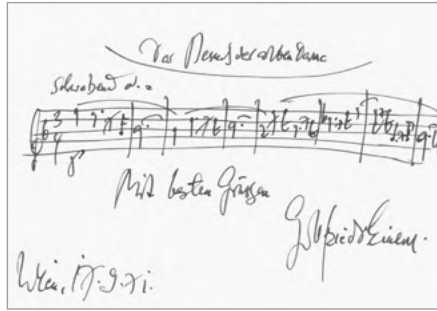 Der Besuch der alten Dame
schwebend
3
4
p
Mit besten Grüßen
Gottfried Einem.
Wien, 17.9.71.